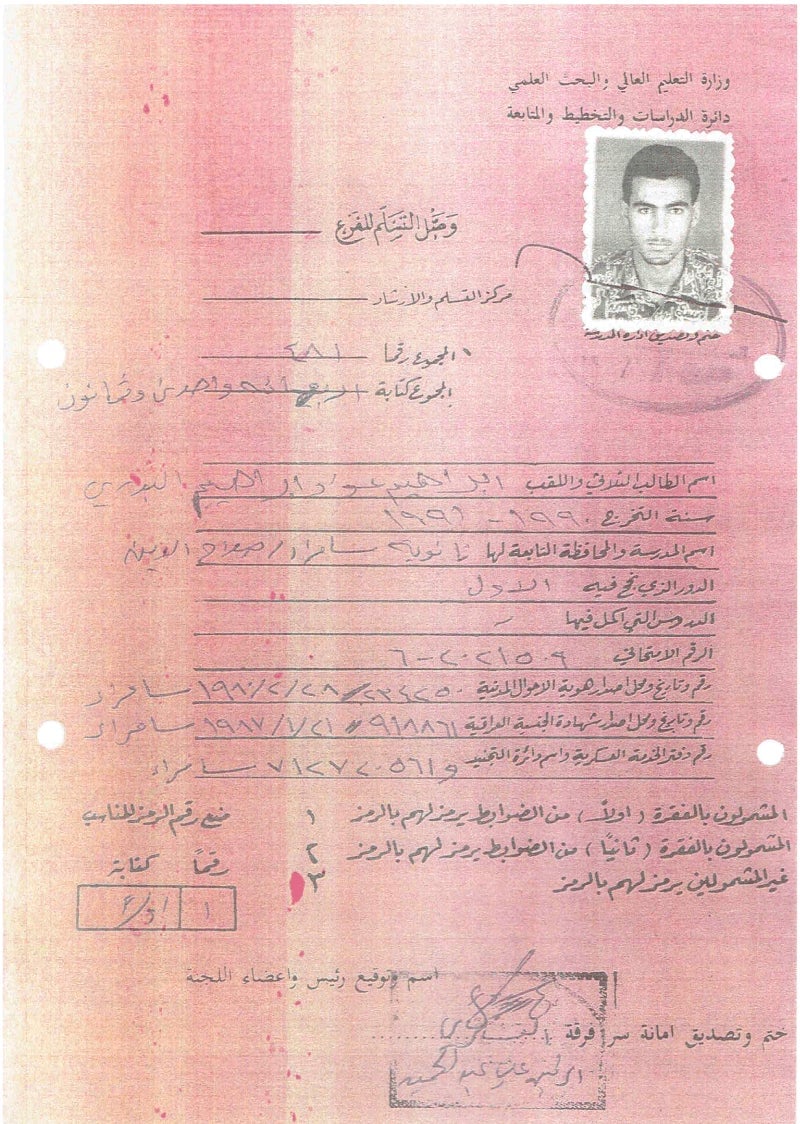 وزارة التعليم العالي والبحث العلمي
دائرة الدراسات والتخطيط والمتابعة
وصل التسلم للفرع
ختم وتصديق ادارة المدرسة
مركز التسلم والارشاد
المجموع رقما ٤٨١
المجموع كتابة اربعمائه واحدى وثمانون
اسم الطالب الثلاثي واللقب ابراهيم عواد ابراهيم البدري
سنة التخرج ١٩٩٠ - ١٩٩١
اسم المدرسة والمحافظة التابعة لها ثانوية سامراء / صلاح الدين
الدور الذي نجح فيه الاول
الدروس التي اكمل فيها -
الرقم الامتحاني
رقم وتاريخ ومحل اصدار هوية الاحوال المدنية ٢٣٤٢٥٠ // ١٩٨٠/٢/٢٨ سامراء
رقم وتاريخ ومحل اصدار شهادة الجنسية العراقية ٩١٨٨٦١ // ١٩٨٧/١/٢١ سامراء
رقم دفتر الخدمة العسكرية واسم دائرة التجنيد سامراء
المشمولون بالفقرة (اولاً) من الضوابط يرمز لهم بالرمز ١
المشمولون بالفقرة (ثانياً) من الضوابط يرمز لهم بالرمز ٢
غير المشمولين يرمز لهم بالرمز ٣
رقم الرمز المناسب
رقماً كتابة
١
اسم وتوقيع رئيس واعضاء اللجنة
ختم وتصديق امانة سر فرقة